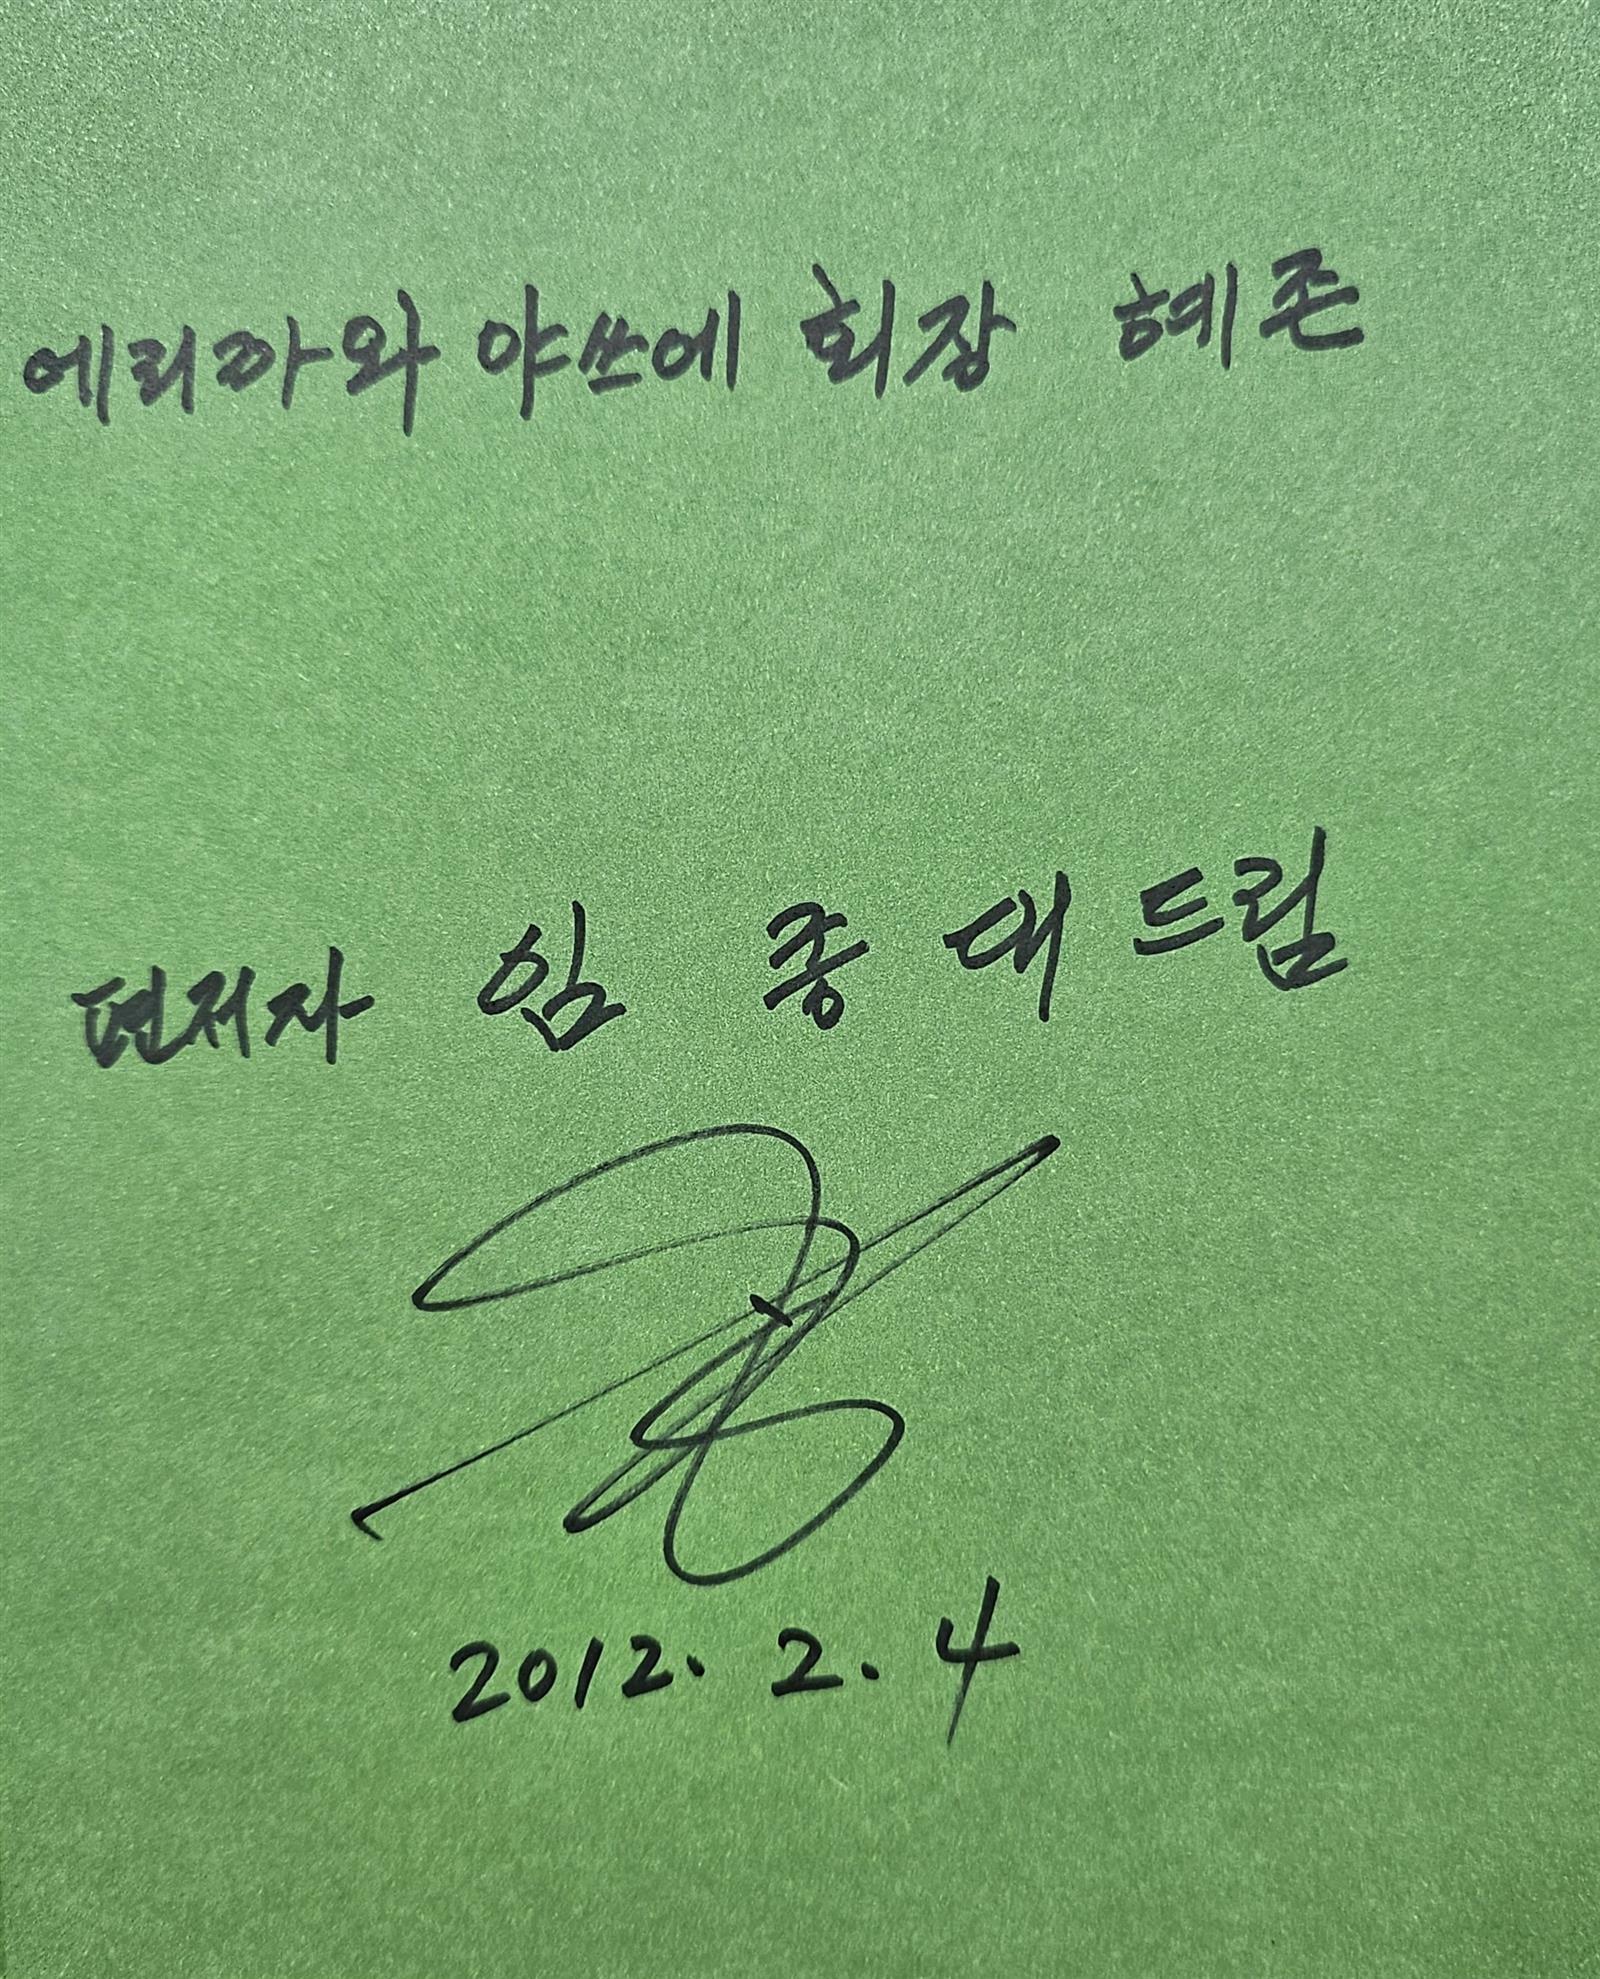 에리까와 야쓰에 회장 혜존
편저자 임 종 대 드림
2012. 2. 4